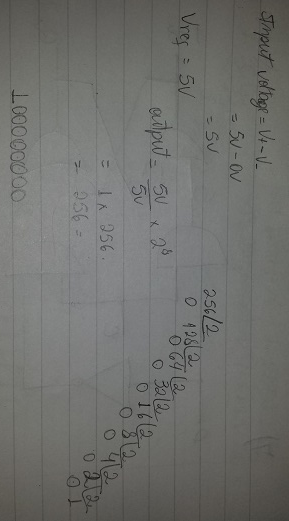 Input voltage = V+ - V-
= 5V - 0V
= 5V
Vref = 5V
output = 5V/5V × 2⁸
= 1 × 256.
= 256 =
100000000
256/2
0 128/2
0 64/2
0 32/2
0 16/2
0 8/2
0 4/2
0 2/2
0 1